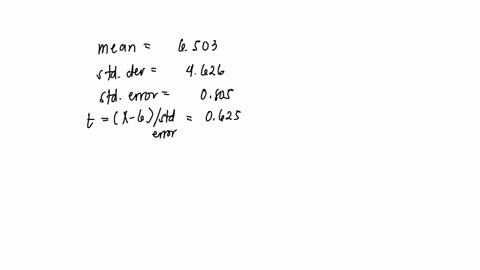 mean = 6.503
std. dev = 4.626
std. error = 0.805
t = (x-6)/std error = 0.625